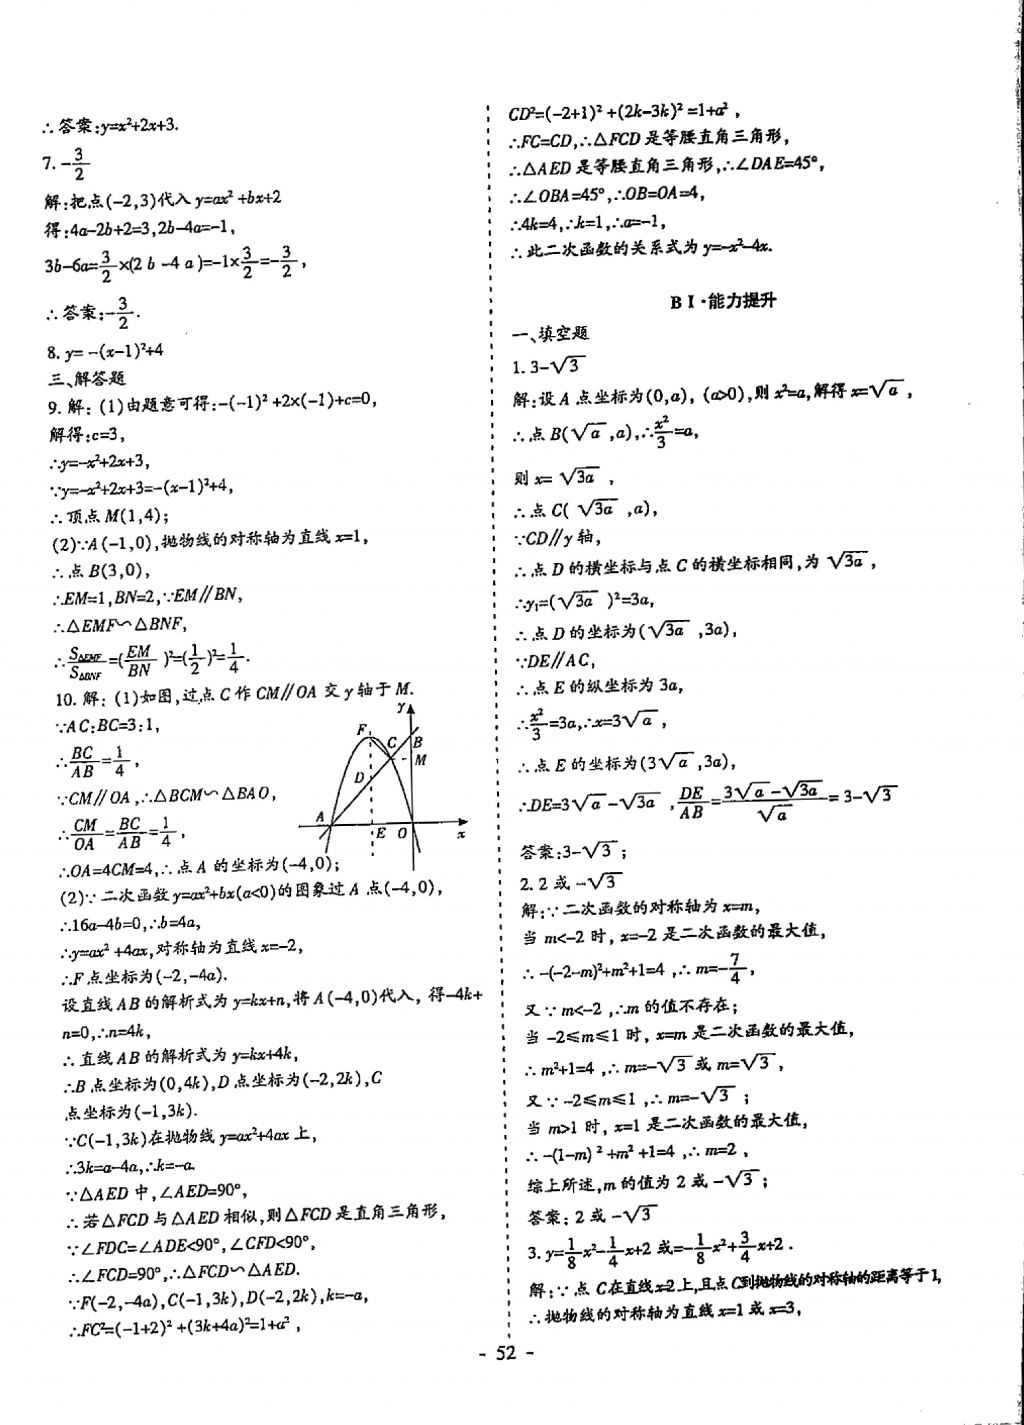 ∴答案:y=x²+2x+3.
7. -3/2
解:把点(-2,3)代入 y=ax²+bx+2
得:4a-2b+2=3,2b-4a=-1,
3b-6a=3/2×(2b-4a)=-1×3/2=-3/2,
∴答案:-3/2.
8. y= -(x-1)²+4
三、解答题
9. 解: (1)由题意可得:-(-1)²+2×(-1)+c=0,
解得:c=3,
∴y=-x²+2x+3,
∵y=-x²+2x+3=-(x-1)²+4,
∴顶点 M(1,4);
(2)∵A(-1,0),抛物线的对称轴为直线 x=1,
∴点 B(3,0),
∴EM=1,BN=2,∵EM∥BN,
∴△EMF∽△BNF,
∴S△EMF/S△BNF=(EM/BN)²=(1/2)²=1/4.
10. 解: (1)如图,过点 C 作 CM∥OA 交 y 轴于 M.
∵AC:BC=3:1,
∴BC/AB=1/4,
∵CM∥OA,∴△BCM∽△BAO,
∴CM/OA=BC/AB=1/4,
∴OA=4CM=4,∴点 A 的坐标为(-4,0);
Y
F
C
B
M
D
A
E
O
x
(2)∵二次函数 y=ax²+bx(a<0)的图象过 A 点(-4,0),
∴16a-4b=0,∴b=4a,
∴y=ax²+4ax,对称轴为直线 x=-2,
∴F 点坐标为(-2,-4a).
设直线 AB 的解析式为 y=kx+n,将 A(-4,0)代入, 得-4k+
n=0,∴n=4k,
∴直线 AB 的解析式为 y=kx+4k,
∴B 点坐标为(0,4k),D 点坐标为(-2,2k),C
点坐标为(-1,3k).
∵C(-1,3k)在抛物线 y=ax²+4ax 上,
∴3k=a-4a,∴k=-a.
∵△AED 中,∠AED=90°,
∴若△FCD 与△AED 相似,则△FCD 是直角三角形,
∵∠FDC=∠ADE<90°,∠CFD<90°,
∴∠FCD=90°,∴△FCD∽△AED.
∵F(-2,-4a),C(-1,3k),D(-2,2k),k=-a,
∴FC²=(-1+2)²+(3k+4a)²=1+a²,
CD²=(-2+1)²+(2k-3k)²=1+a²,
∴FC=CD,∴△FCD 是等腰直角三角形,
∴△AED 是等腰直角三角形,∴∠DAE=45°,
∴∠OBA=45°,∴OB=OA=4,
∴4k=4,∴k=1,∴a=-1,
∴此二次函数的关系式为 y=-x²-4x.
B Ⅰ·能力提升
一、填空题
1. 3-√3
解:设 A 点坐标为(0,a), (a>0),则 x²=a,解得 x=√a,
∴点 B(√a,a),∴x²/3=a,
则 x= √3a,
∴点 C(√3a,a),
∵CD∥y 轴,
∴点 D 的横坐标与点 C 的横坐标相同,为 √3a,
∴y₁=(√3a)²=3a,
∴点 D 的坐标为(√3a,3a),
∵DE∥AC,
∴点 E 的纵坐标为 3a,
∴x²/3=3a,∴x=3√a,
∴点 E 的坐标为(3√a,3a),
∴DE=3√a-√3a,DE/AB=(3√a-√3a)/√a=3-√3
答案:3-√3;
2. 2 或 -√3
解:∵二次函数的对称轴为 x=m,
当 m<-2 时, x=-2 是二次函数的最大值,
∴-(-2-m)²+m²+1=4,∴m=-7/4,
又∵m<-2,∴m 的值不存在;
当 -2≤m≤1 时, x=m 是二次函数的最大值,
∴m²+1=4,∴m=-√3 或 m=√3,
又∵-2≤m≤1,∴m=-√3;
当 m>1 时, x=1 是二次函数的最大值,
∴-(1-m)²+m²+1=4,∴m=2,
综上所述,m 的值为 2 或 -√3;
答案: 2 或 -√3
3. y=1/8x²-1/4x+2 或=-1/8x²+3/4x+2.
解:∵点 C在直线x=2上,且点C到抛物线的对称轴的距离等于1,
∴抛物线的对称轴为直线 x=1 或 x=3,
- 52 -